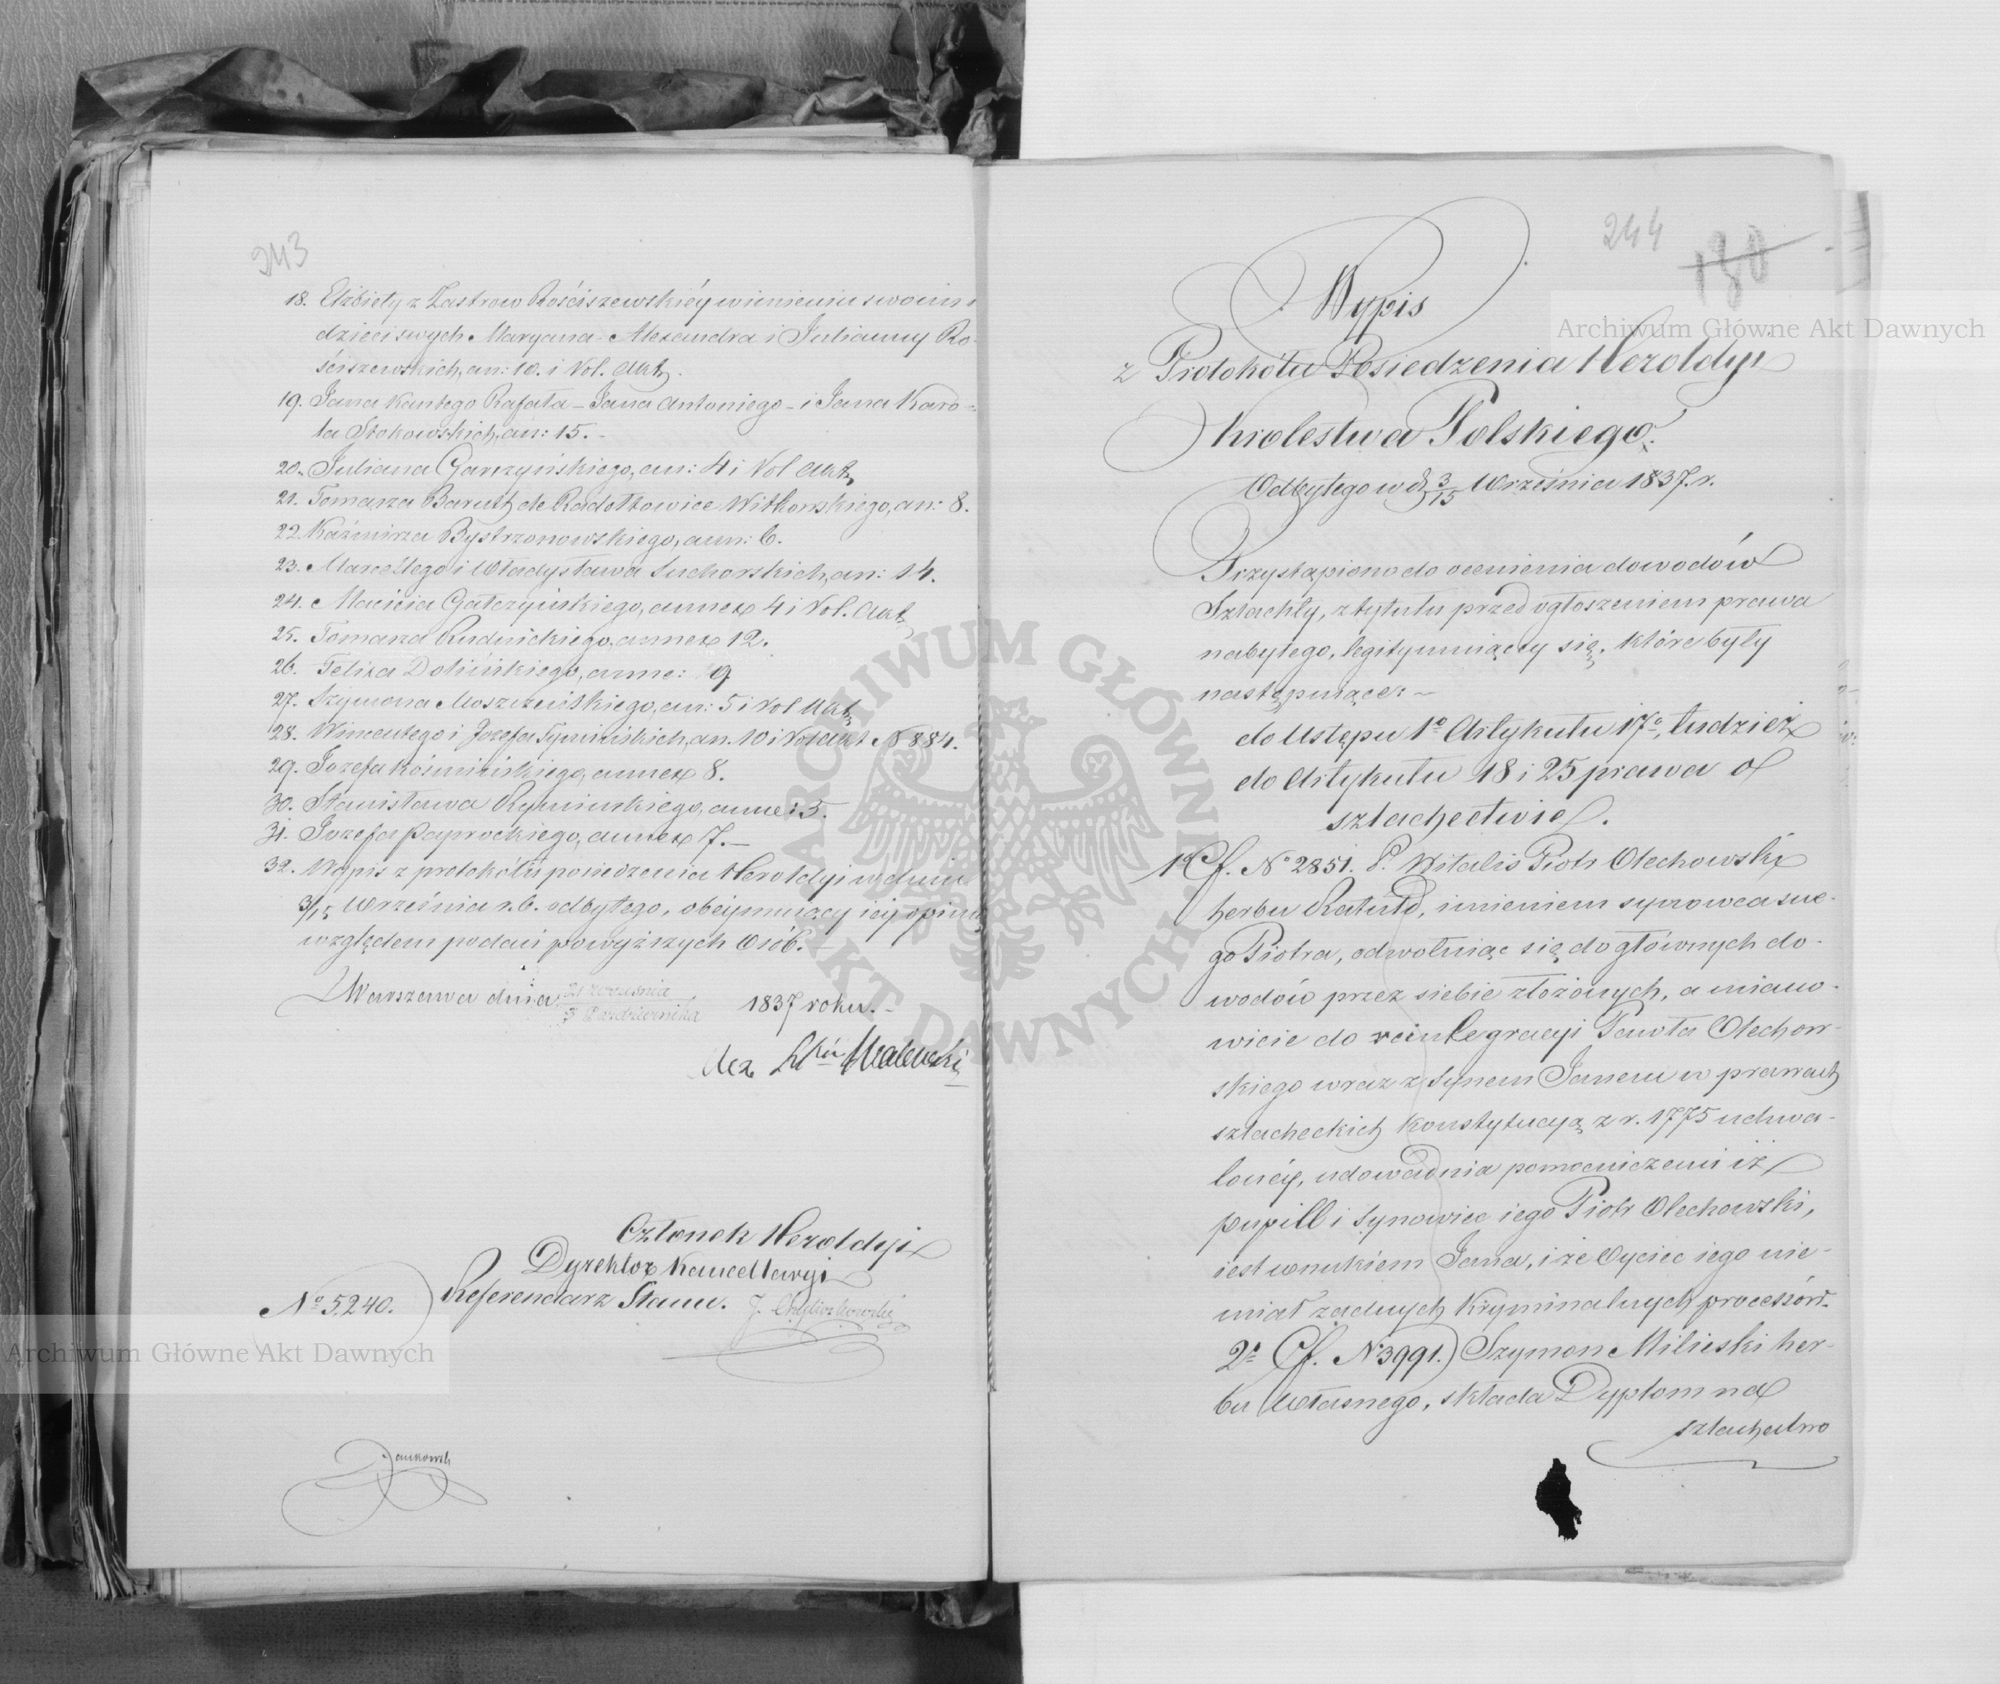 243
18. Elżbiety z Zastrow Rościszewskiéy w imieniu swoim i
dzieci swych Maryana - Alexandra i Julianny Ro-
ściszewskich, an: 10. i Vol. Akt.
19. Jana Kantego Rafała - Jana Antoniego - i Jana Karo-
la Stokowskich, an: 15. -
20. Juliana Garczyńskiego, an: 4 i Vol Akt,
21. Tomasza Barutz de Radołkowice Witkowskiego, an: 8.
22. Kaźmirza Bystrzonowskiego, ann: 6.
23. Marcellego i Władysława Suchorskich, an: 14.
24. Macieia Gałczyńskiego, annex 4 i Vol. Akt,
25. Tomasza Rudnickiego, annex 12.
26. Felixa Dolińskiego, anne: 9
27. Szymona Moszczeńskiego, an: 5 i Vol Akt,
28. Wincentego i Józefa Tymińskich, an. 10 i Vol Akt N 884.
29. Józefa Kośmińskiego, annex 8.
30. Stanisława Rymińskiego, anne: 5.
31. Józefa Paprockiego, annex 7. —
32. Wypis z protokółu posiedzenia Heroldyi w dniu
3/15 Września r. b. odbytego, obeymuiący iéy opinią
względem podań powyższych Osób. —
Warszawa dnia 21 Września / 3 Października 1837 roku. -
Alex. Walewski
Członek Heroldyi
Dyrektor Kancellaryi
Referendarz Stanu.
No 5240.
Jankowski
244
180
Wypis
z Protokółu Posiedzenia Heroldyi
Krolestwa Polskiego.
Odbytego w d. 3/15 Września 1837. r.
Przystąpiono do ocenienia dowodów
Szlachty, z tytułu przed ogłoszeniem prawa
nabytego, legitymuiącéy się, które były
nastepuiące: —
do Ustępu 1o Artykułu 17o, tudzież
do Artykułu 18 i 25 prawa o
szlachectwie.
1o Cf. No 2851. P. Witalis Piotr Olechowski
herbu Ratułd, imieniem synowca swe-
go Piotra, odwołuiąc się do głównych do-
wodów przez siebie złożonych, a miano-
wicie do reintegracyi Pawła Olechow-
skiego wraz z Synem Janem w prawach
szlacheckich konstytucyą z r. 1775 uchwa-
lonéy, udowadnia pomocniczemi iż
pupill i synowiec iego Piotr Olechowski,
iest wnukiem Jana, i że Oyciec iego nie
miał żadnych kryminalnych processów.
2o Cf. No 3991.) Szymon Milieski her-
bu Własnego, składa Dyplom na
szlachectwo
Archiwum Główne Akt Dawnych
Archiwum Główne Akt Dawnych
ARCHIWUM GŁÓWNE AKT DAWNYCH